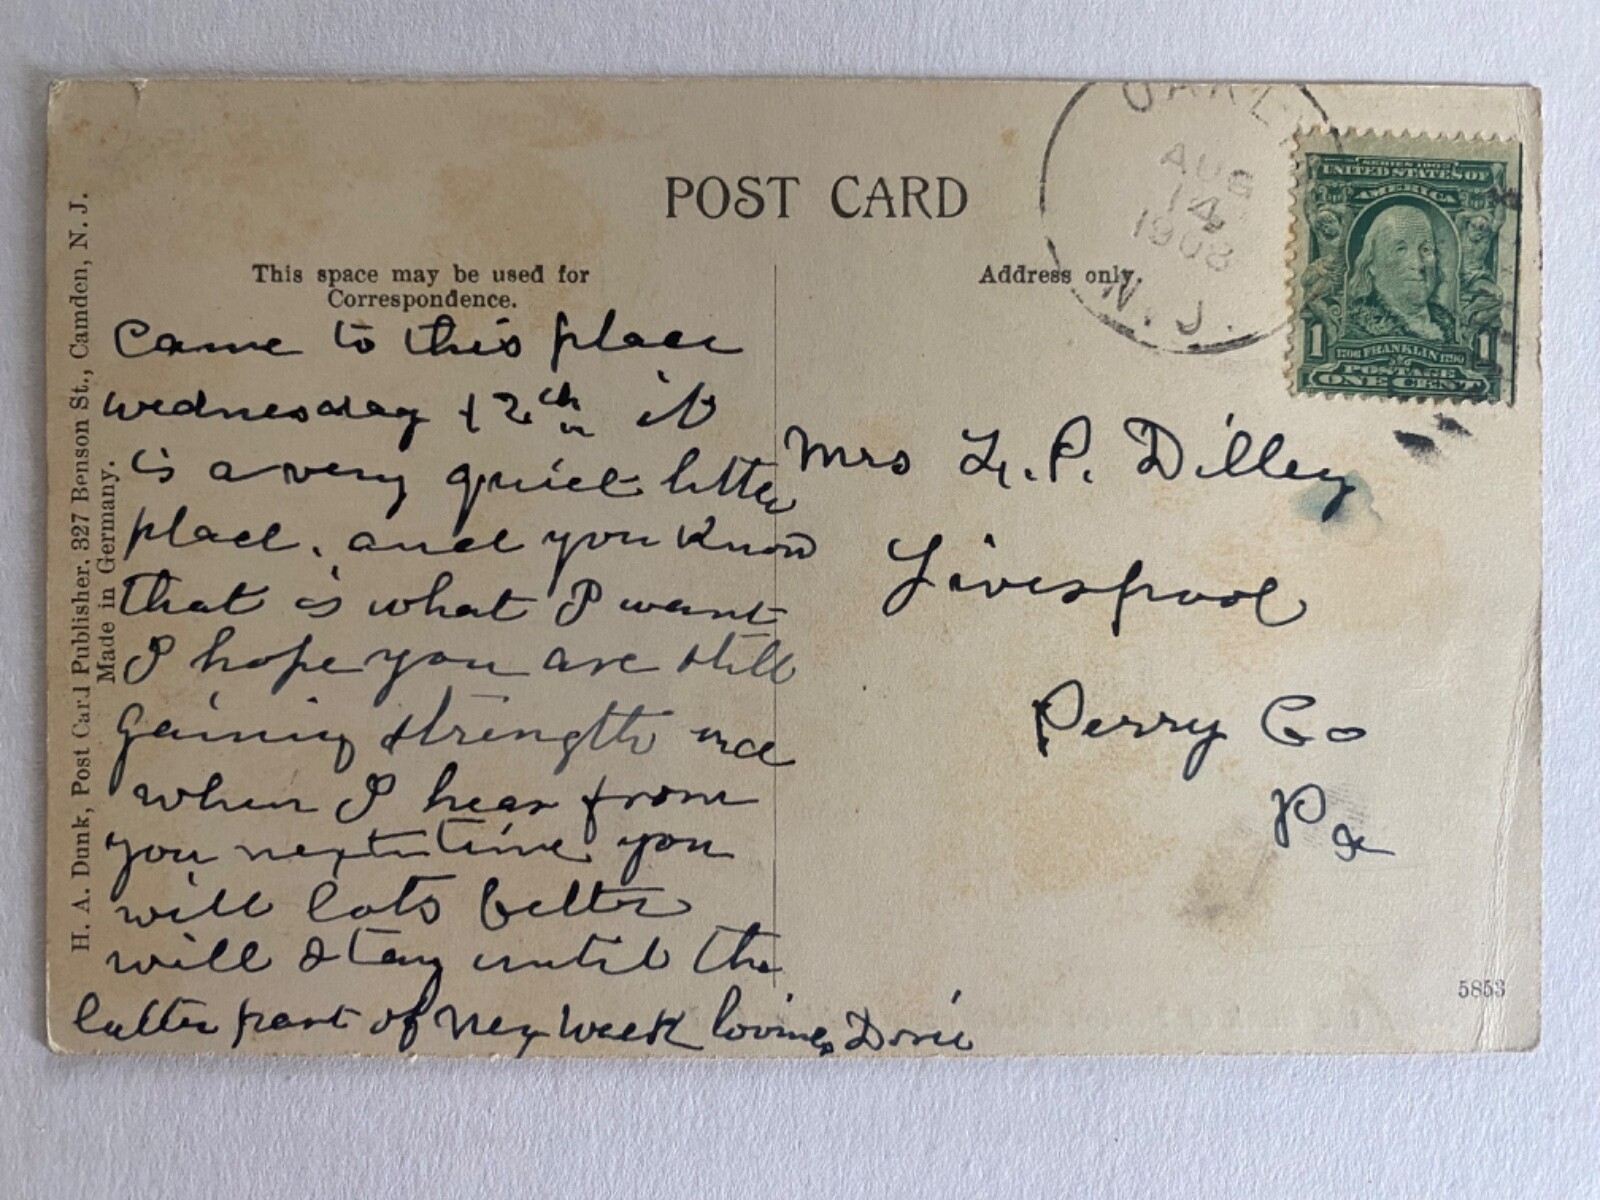 POST CARD
This space may be used for
Correspondence.
Address only.
H. A. Dunk, Post Card Publisher, 327 Benson St., Camden, N. J.
Made in Germany.
AUG
14
1908
N.J.
SERIES 1902
UNITED STATES OF
AMERICA
1 1
1706 FRANKLIN 1790
POSTAGE
ONE CENT
Came to this place
wednesday 12th it
is a very quiet little
place. and you know
that is what I want
I hope you are still
gaining strength and
when I hear from
you next time you
will lots better
will stay until the
latter part of nex week loving Dorie
Mrs L. P. Dilley
Liverpool
Perry Co
Pa
5853